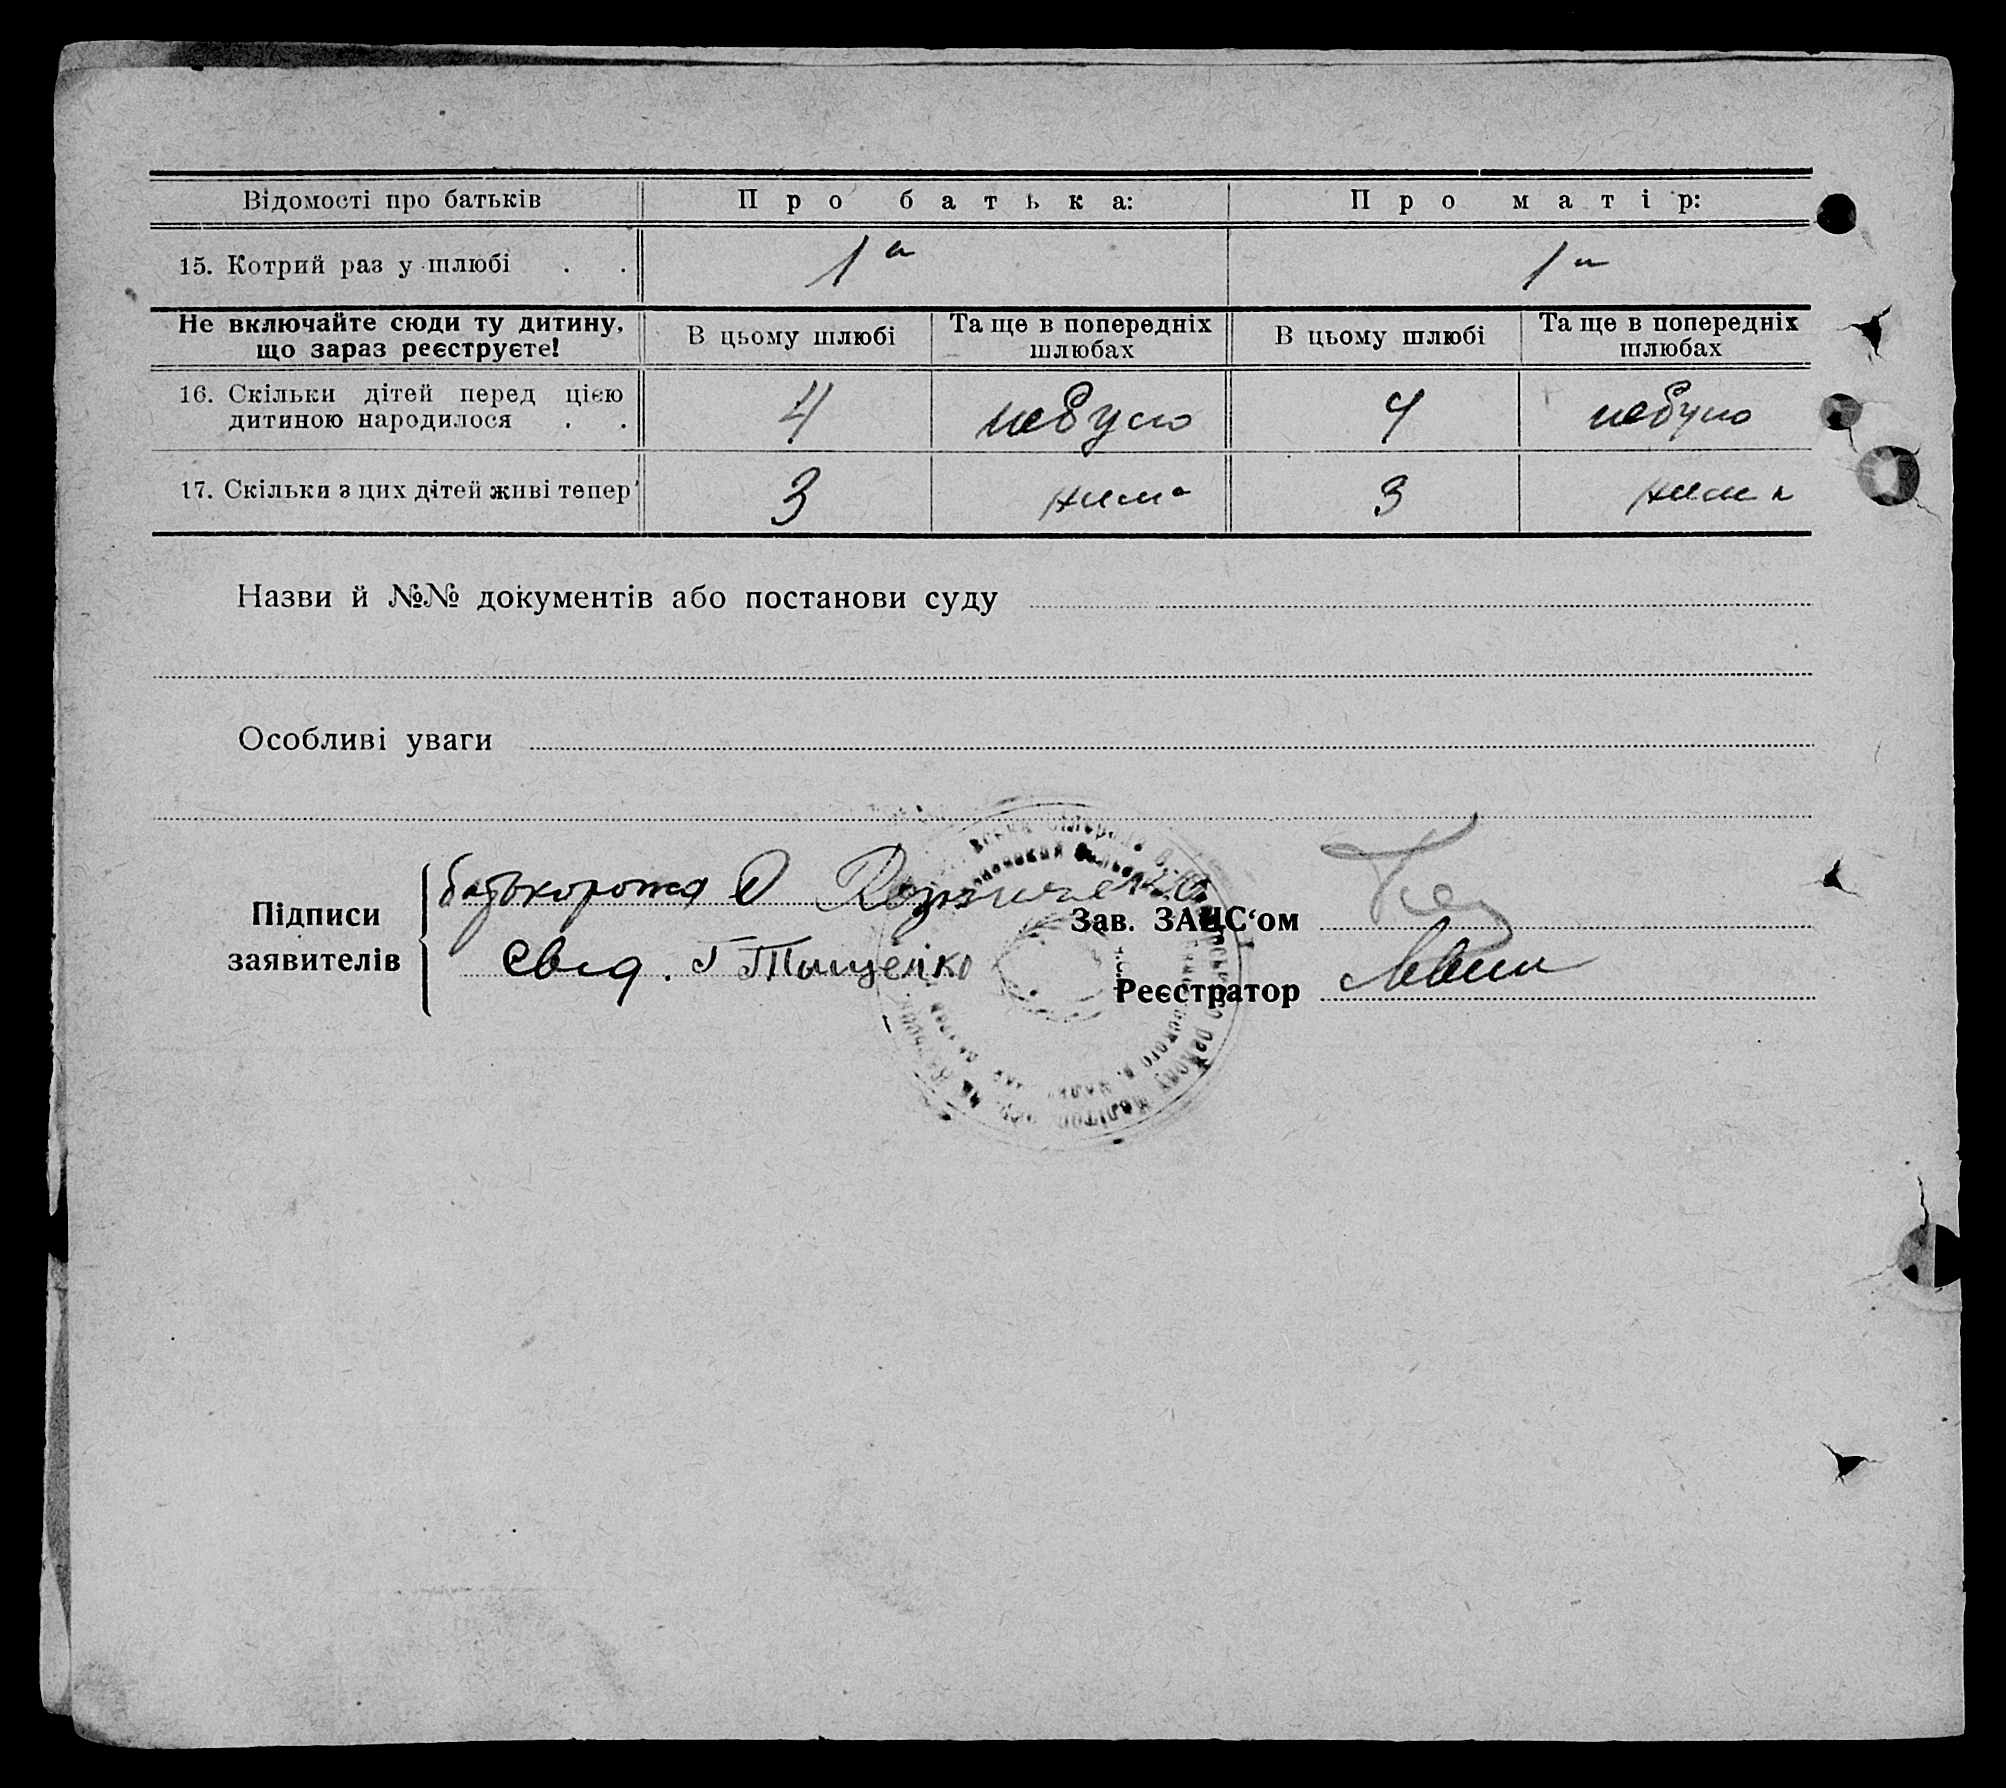 Відомості про батьків Про батька: Про матір:
15. Котрий раз у шлюбі . . 1й 1й
Не включайте сюди ту дитину, що зараз реєструєте! В цьому шлюбі Та ще в попередніх шлюбах В цьому шлюбі Та ще в попередніх шлюбах
16. Скільки дітей перед цією
дитиною народилося . . 4 небуло 4 небуло
17. Скільки з цих дітей живі тепер 3 нема 3 нема
Назви й №№ документів або постанови суду
Особливі уваги
Підписи
заявителів
Свід. Г Тищенко
Зав. ЗАЦС‘ом
Реєстратор